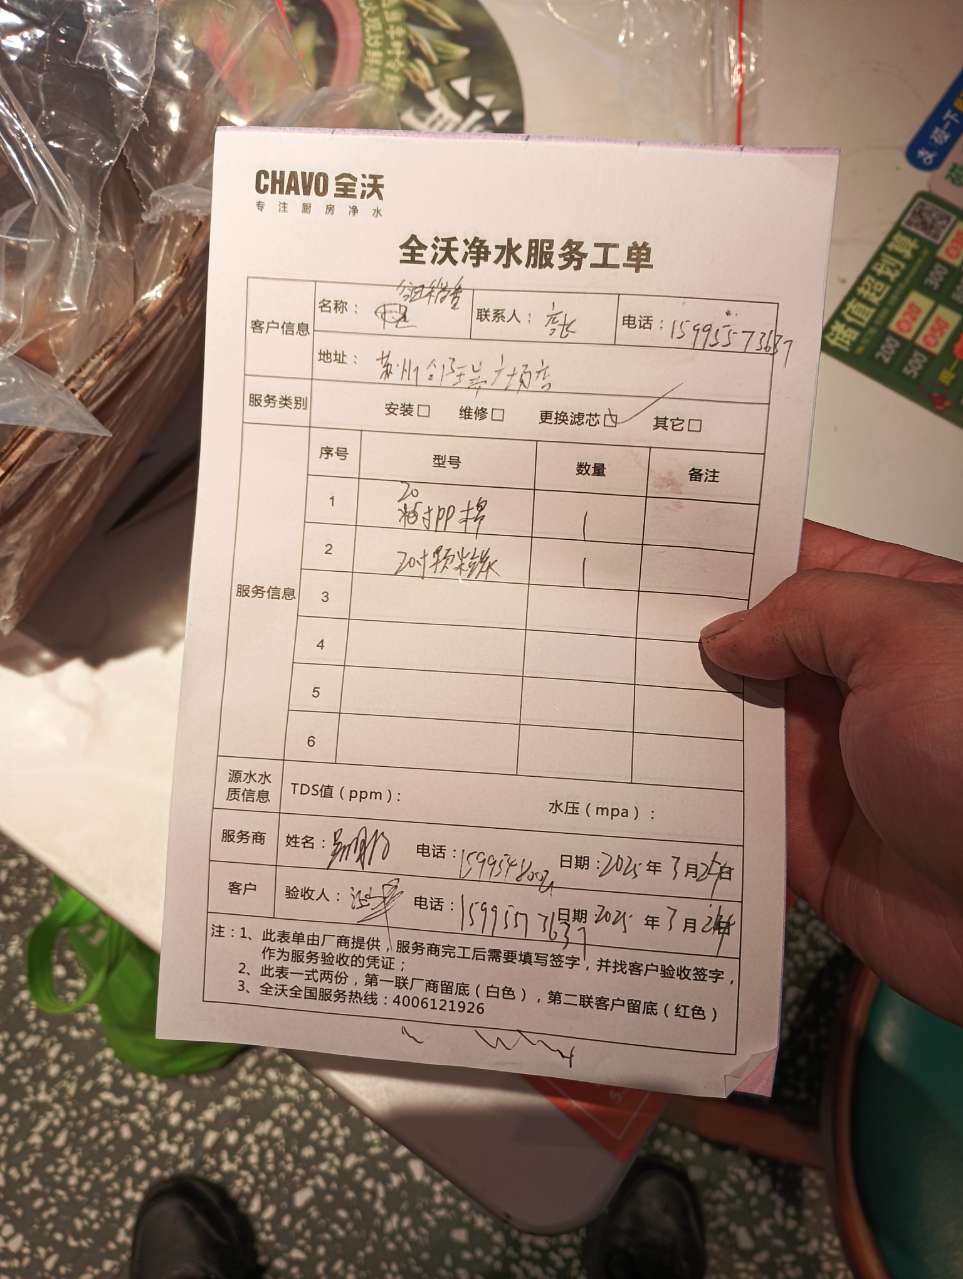 CHAVO 全沃
专注厨房净水
全沃净水服务工单
客户信息
名称：
联系人：店长
电话：15995573637
地址：苏州
服务类别
安装□ 维修□ 更换滤芯☑ 其它□
服务信息
序号 型号 数量 备注
1 20寸PP棉 1
2 20寸颗粒炭 1
3
4
5
6
源水水质信息
TDS值（ppm）： 水压（mpa）：
服务商 姓名： 电话： 日期：2025年3月24日
客户 验收人： 电话：15995573637 日期 2025年3月24日
注：1、此表单由厂商提供，服务商完工后需要填写签字，并找客户验收签字，
作为服务验收的凭证；
2、此表一式两份，第一联厂商留底（白色），第二联客户留底（红色）
3、全沃全国服务热线：4006121926
储值超划算
200
300
500